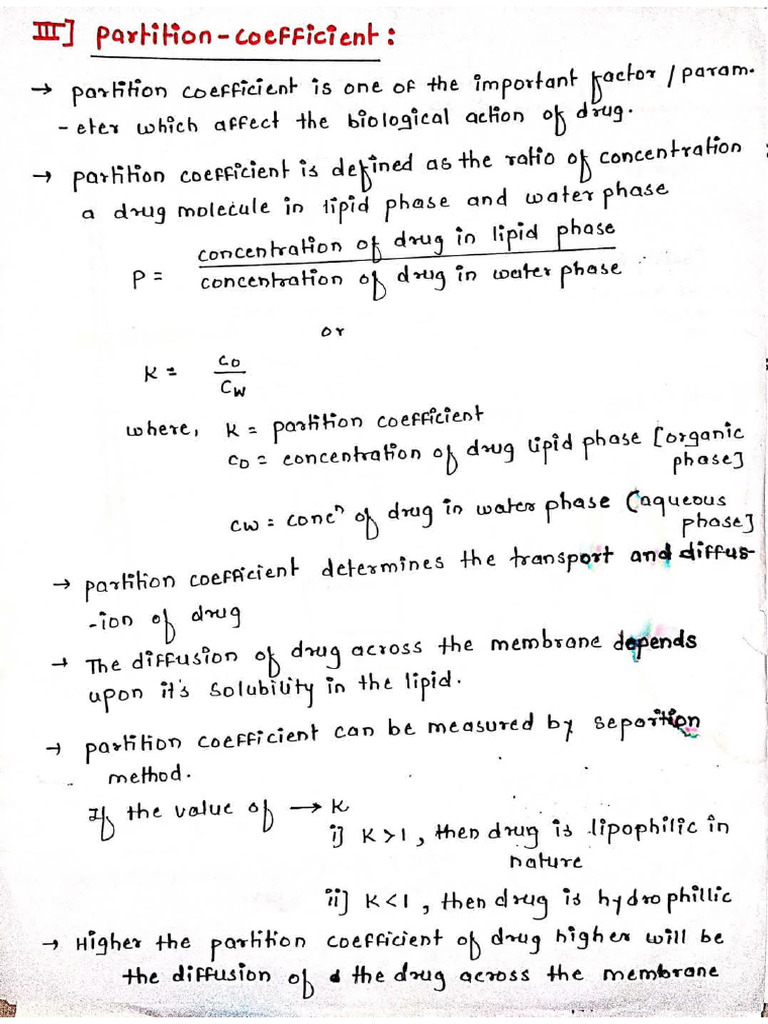 III] Partition-coefficient:
→ partition coefficient is one of the important factor / param-
-eter which affect the biological action of drug.
→ partition coefficient is defined as the ratio of concentration
a drug molecule in lipid phase and water phase
P = concentration of drug in lipid phase
concentration of drug in water phase
or
K = Co
Cw
where, K = partition coefficient
Co = concentration of drug lipid phase [organic
phase]
Cw = concⁿ of drug in water phase (aqueous
phase]
→ partition coefficient determines the transport and diffus-
-ion of drug
→ The diffusion of drug across the membrane depends
upon it's solubility in the lipid.
→ partition coefficient can be measured by separtion
method.
If the value of → K
i] K > 1, then drug is lipophilic in
nature
ii] K < 1, then drug is hydrophillic
→ Higher the partition coefficient of drug higher will be
the diffusion of the drug across the membrane